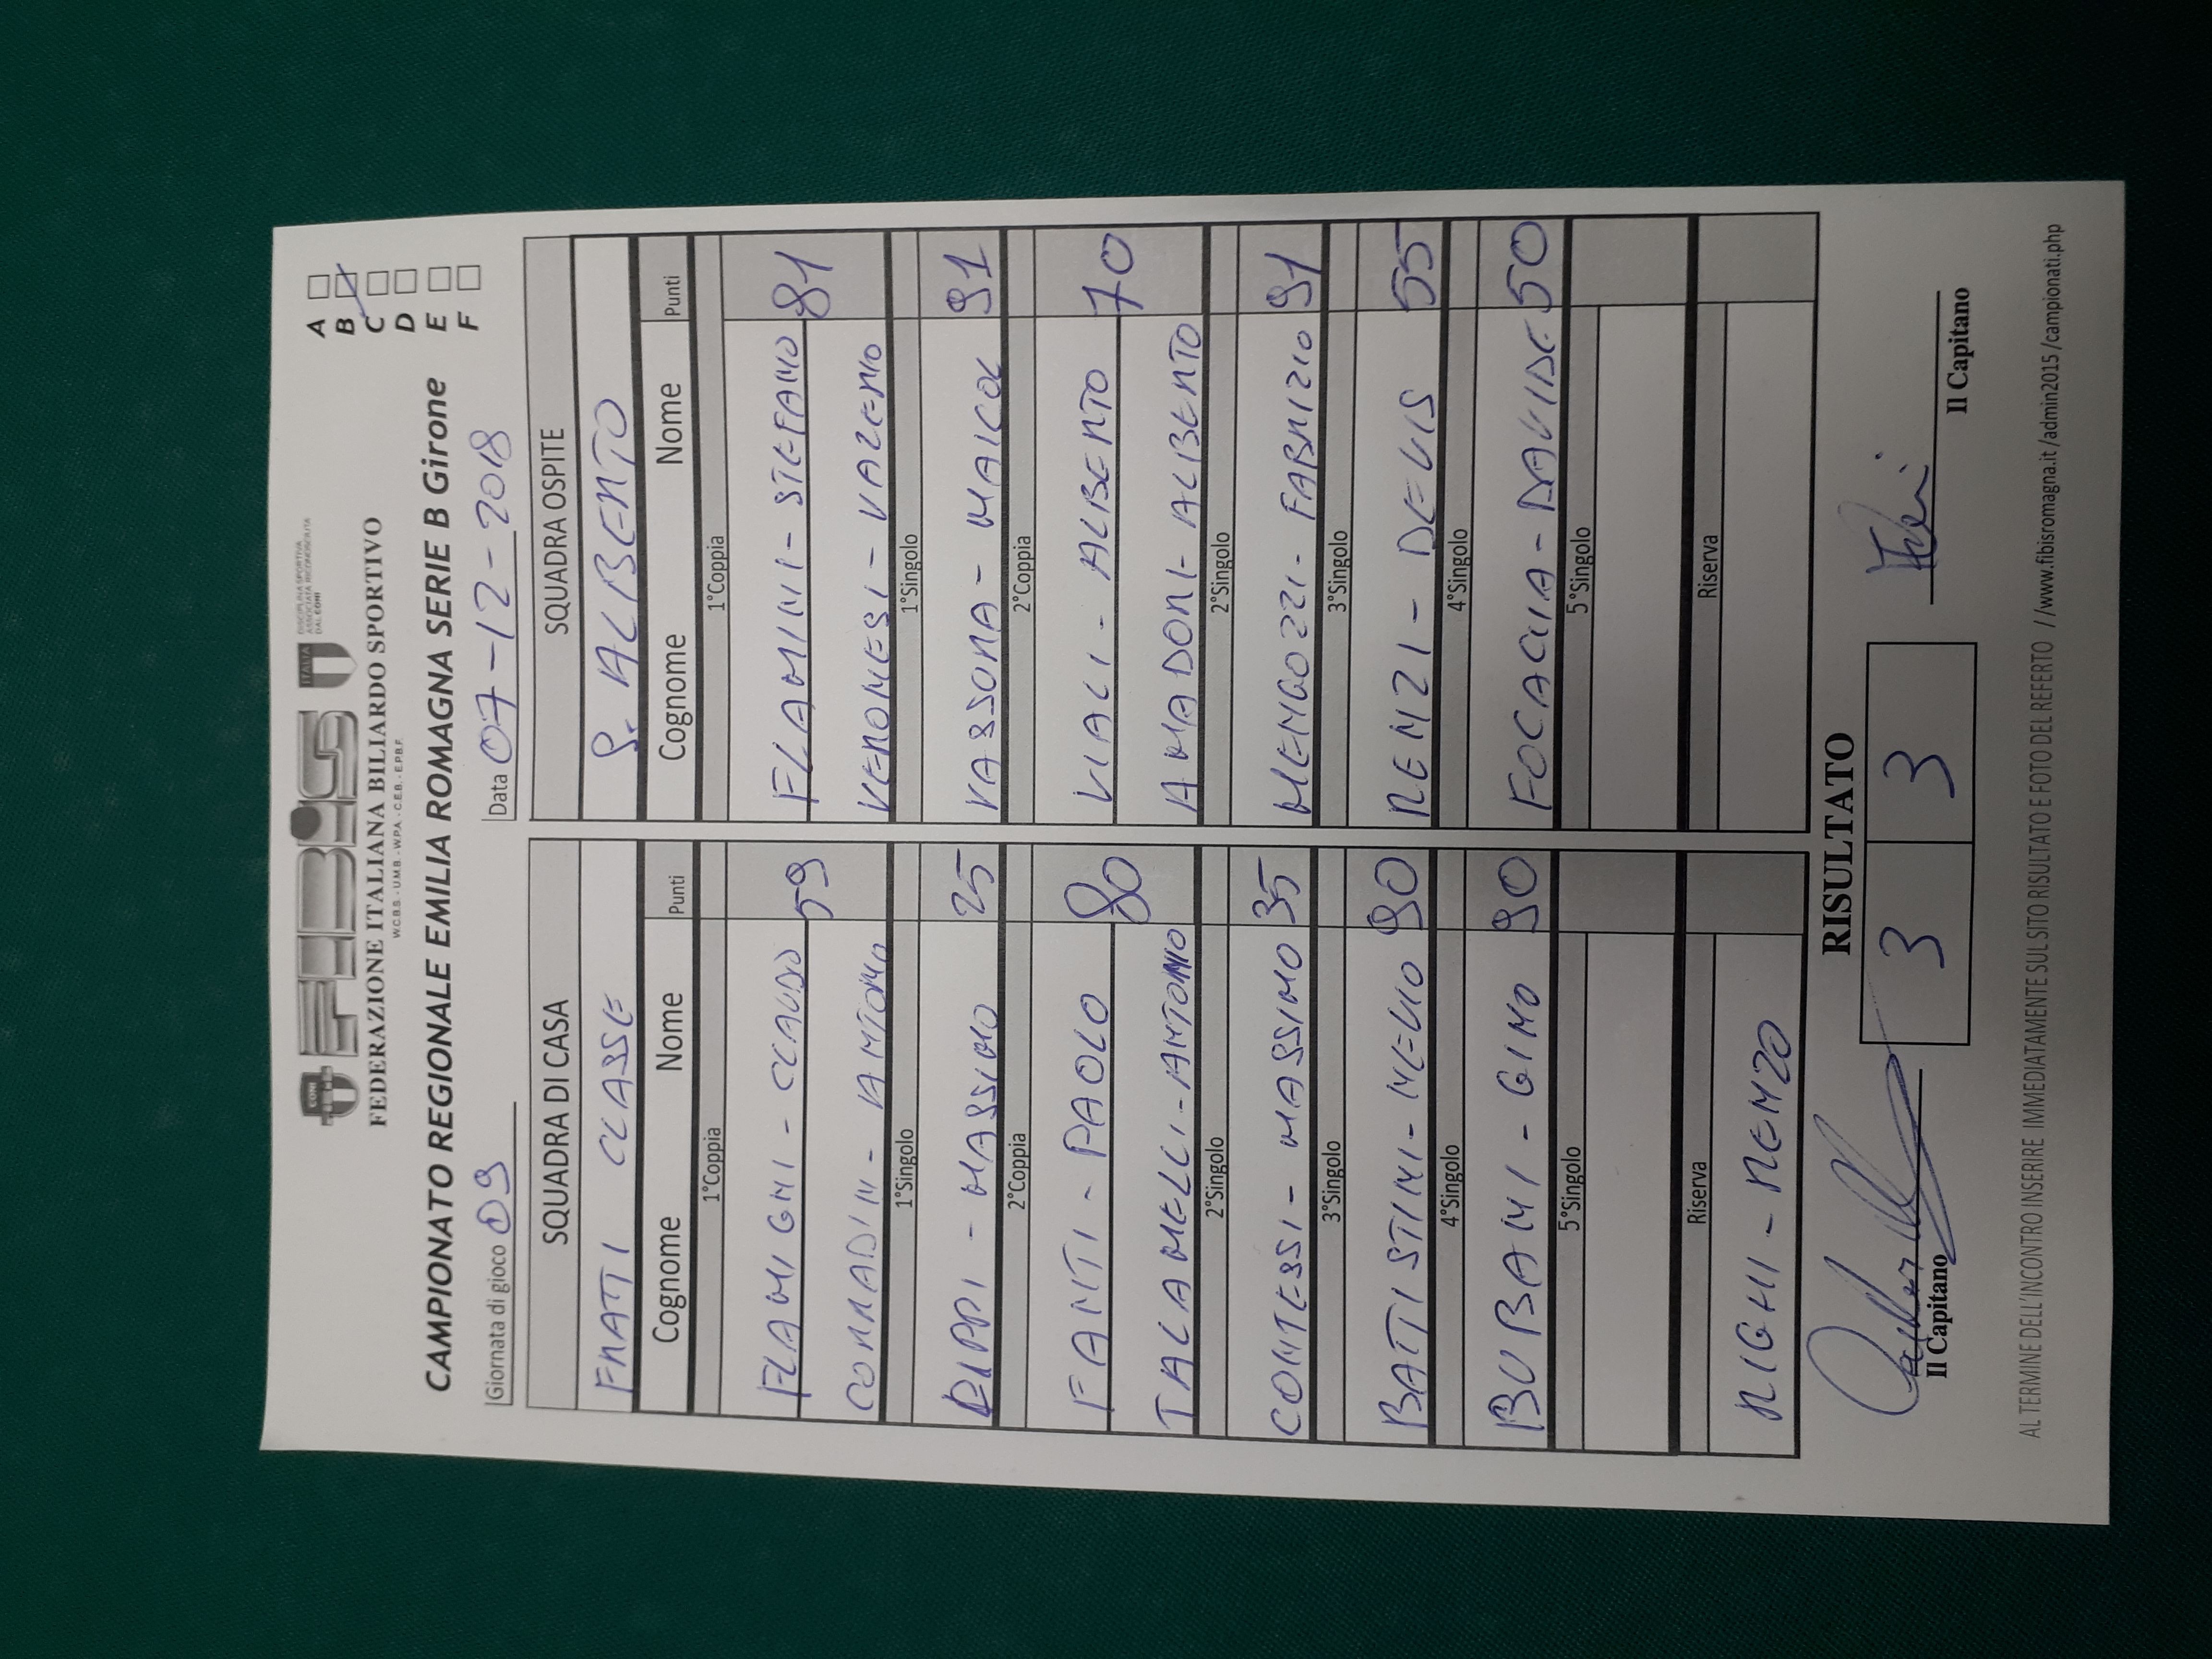 FIBIS
CONI
ITALIA
DISCIPLINA SPORTIVA
ASSOCIATA RICONOSCIUTA
DAL CONI
FEDERAZIONE ITALIANA BILIARDO SPORTIVO
W.C.B.S. - U.M.B. - W.P.A. - C.E.B. - E.P.B.F.
CAMPIONATO REGIONALE EMILIA ROMAGNA SERIE B Girone
A
B
C
D
E
F
Giornata di gioco 09 Data 07-12-2018
SQUADRA DI CASA
FRATTI CLASSE
Cognome Nome Punti
1°Coppia
FLAMIGNI - CLAUDIO 59
CORRADINI - ANTONIO
1°Singolo
DIPPI - MASSIMO 25
2°Coppia
FANTI - PAOLO 80
TALAMELLI - ANTONIO
2°Singolo
CONTESSI - MASSIMO 35
3°Singolo
BATTISTINI - NEVIO 90
4°Singolo
BUBANI - GINO 90
5°Singolo
Riserva
RIGHI - RENZO
SQUADRA OSPITE
S. ALBERTO
Cognome Nome Punti
1°Coppia
FLAMINI - STEFANO 81
VERONESI - VALERIO
1°Singolo
VASSURA - MAICOL 91
2°Coppia
VIALI - ALBERTO 70
AMADORI - ALBERTO
2°Singolo
MENGOZZI - FABRIZIO 91
3°Singolo
RENZI - DEVIS 55
4°Singolo
FOCACCIA - DAVIDE 50
5°Singolo
Riserva
RISULTATO
3 3
Il Capitano
Il Capitano
AL TERMINE DELL'INCONTRO INSERIRE IMMEDIATAMENTE SUL SITO RISULTATO E FOTO DEL REFERTO //www.fibisromagna.it/admin2015/campionati.php